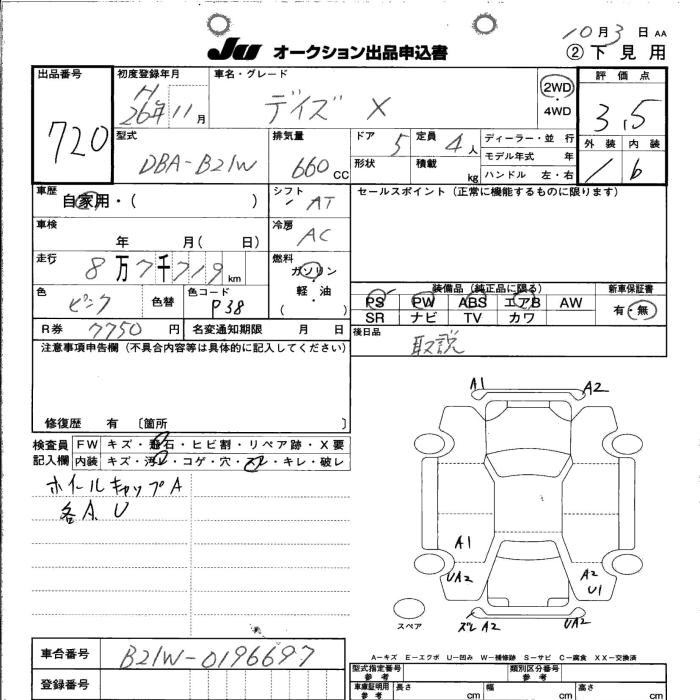 10月3日 AA
JU オークション出品申込書
② 下見用
出品番号
720
初度登録年月
H
26年11月
車名・グレード
デイズ X
2WD
・
4WD
評価点
3.5
外装 内装
1 b
型式
DBA-B21W
排気量
660 CC
ドア 5
形状
定員 4人
積載 kg
ディーラー・並行
モデル年式 年
ハンドル 左・右
車歴
自家用・( )
シフト
AT
セールスポイント(正常に機能するものに限ります)
車検
年 月( 日)
冷房
AC
走行
8万7千719km
燃料
ガソリン
・
軽・油
( )
色
ピンク
色替
色コード
P38
装備品(純正品に限る)
PS PW ABS エアB AW
SR ナビ TV カワ
新車保証書
有・無
R券 7750円
名変通知期限 月 日
後日品
取説
注意事項申告欄(不具合内容等は具体的に記入してください)
修復歴 有 〔箇所 〕
検査員
記入欄
FW キズ・飛石・ヒビ割・リペア跡・X要
内装 キズ・汚レ・コゲ・穴・スレ・キレ・破レ
ホイールキャップA
各A、U
A1
A2
A1
UA2
A2
U1
スペア
ズレ A2
UA2
A-キズ E-エクボ U-凹み W-補修跡 S-サビ C-腐食 XX-交換済
車台番号
B21W-0196697
登録番号
型式指定番号
参考
類別区分番号
参考
車庫証明用
参考
長さ cm
幅 cm
高さ cm